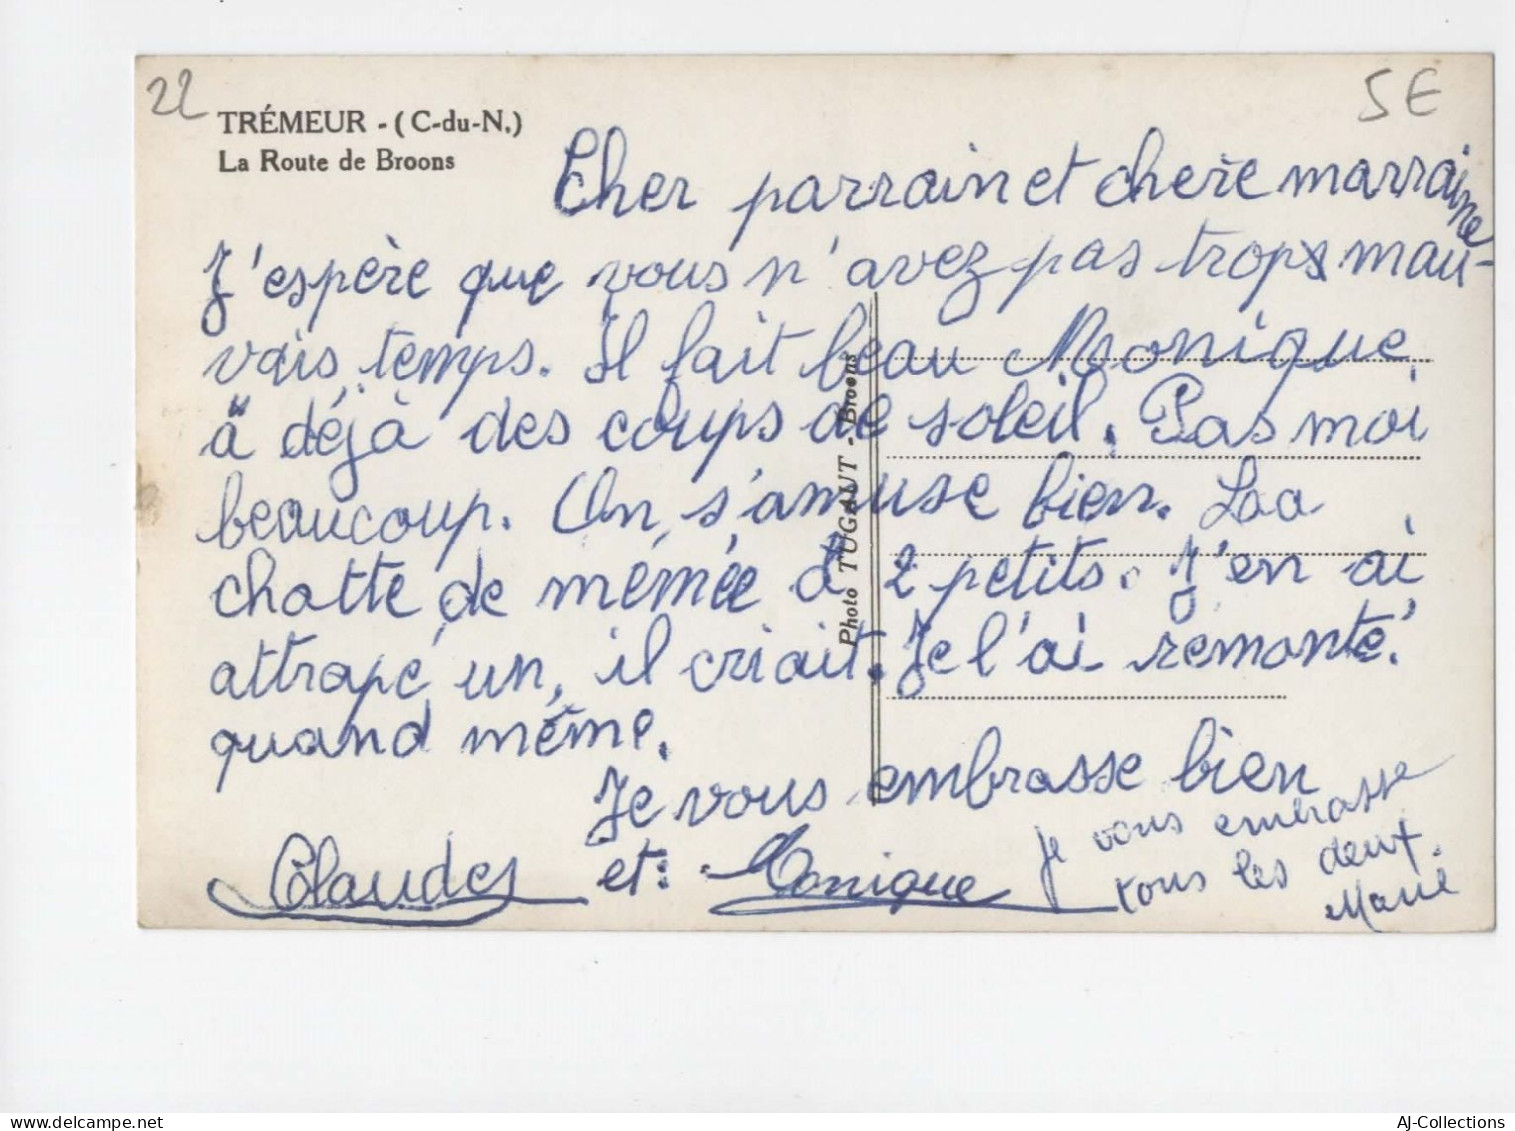 22
5€
TRÉMEUR - (C-du-N.)
La Route de Broons
Cher parrain et cherre marraine
J'espère que vous n'avez pas trops mau-
vais temps. Il fait beau Monique
a déjà des coups de soleil. Pas moi
beaucoup. On s'amuse bien. La
chatte de mémée a 2 petits. J'en ai
attrapé un, il criait. Je l'ai remonté.
quand même.
Je vous embrasse bien
Claudes et: Monique
Je vous embrasse
tous les deux.
Marie
Photo TUGAUT - Broons
delcampe.net
AJ-Collections